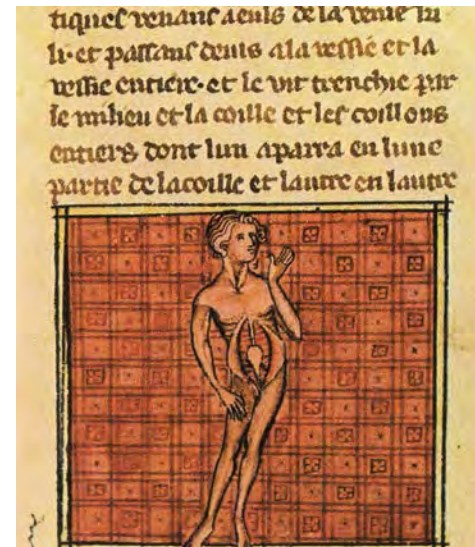 tiques venans de la
li· et passans dedens a la vessie et la
vessie entiere· et le vit trenchie par
le milieu et la coille et les coillons
entiers dont lun aparra en lune
partie de lacoille et lautre en lautre